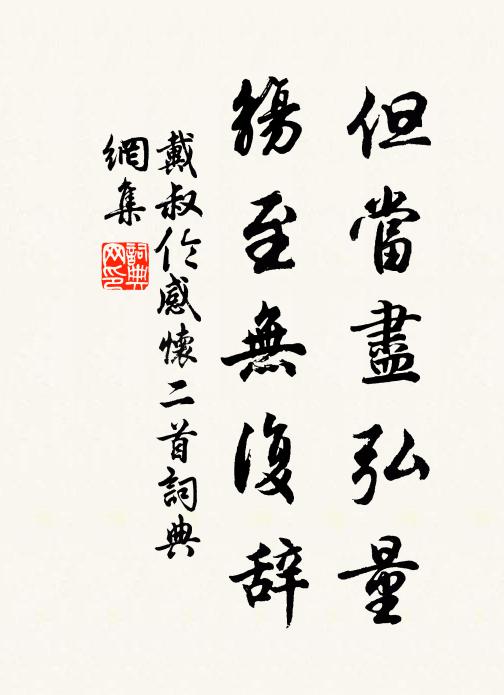 但當盡弘量
觴至無復辞
戴叔伦感懷二首詞典
網集
詞典
网印